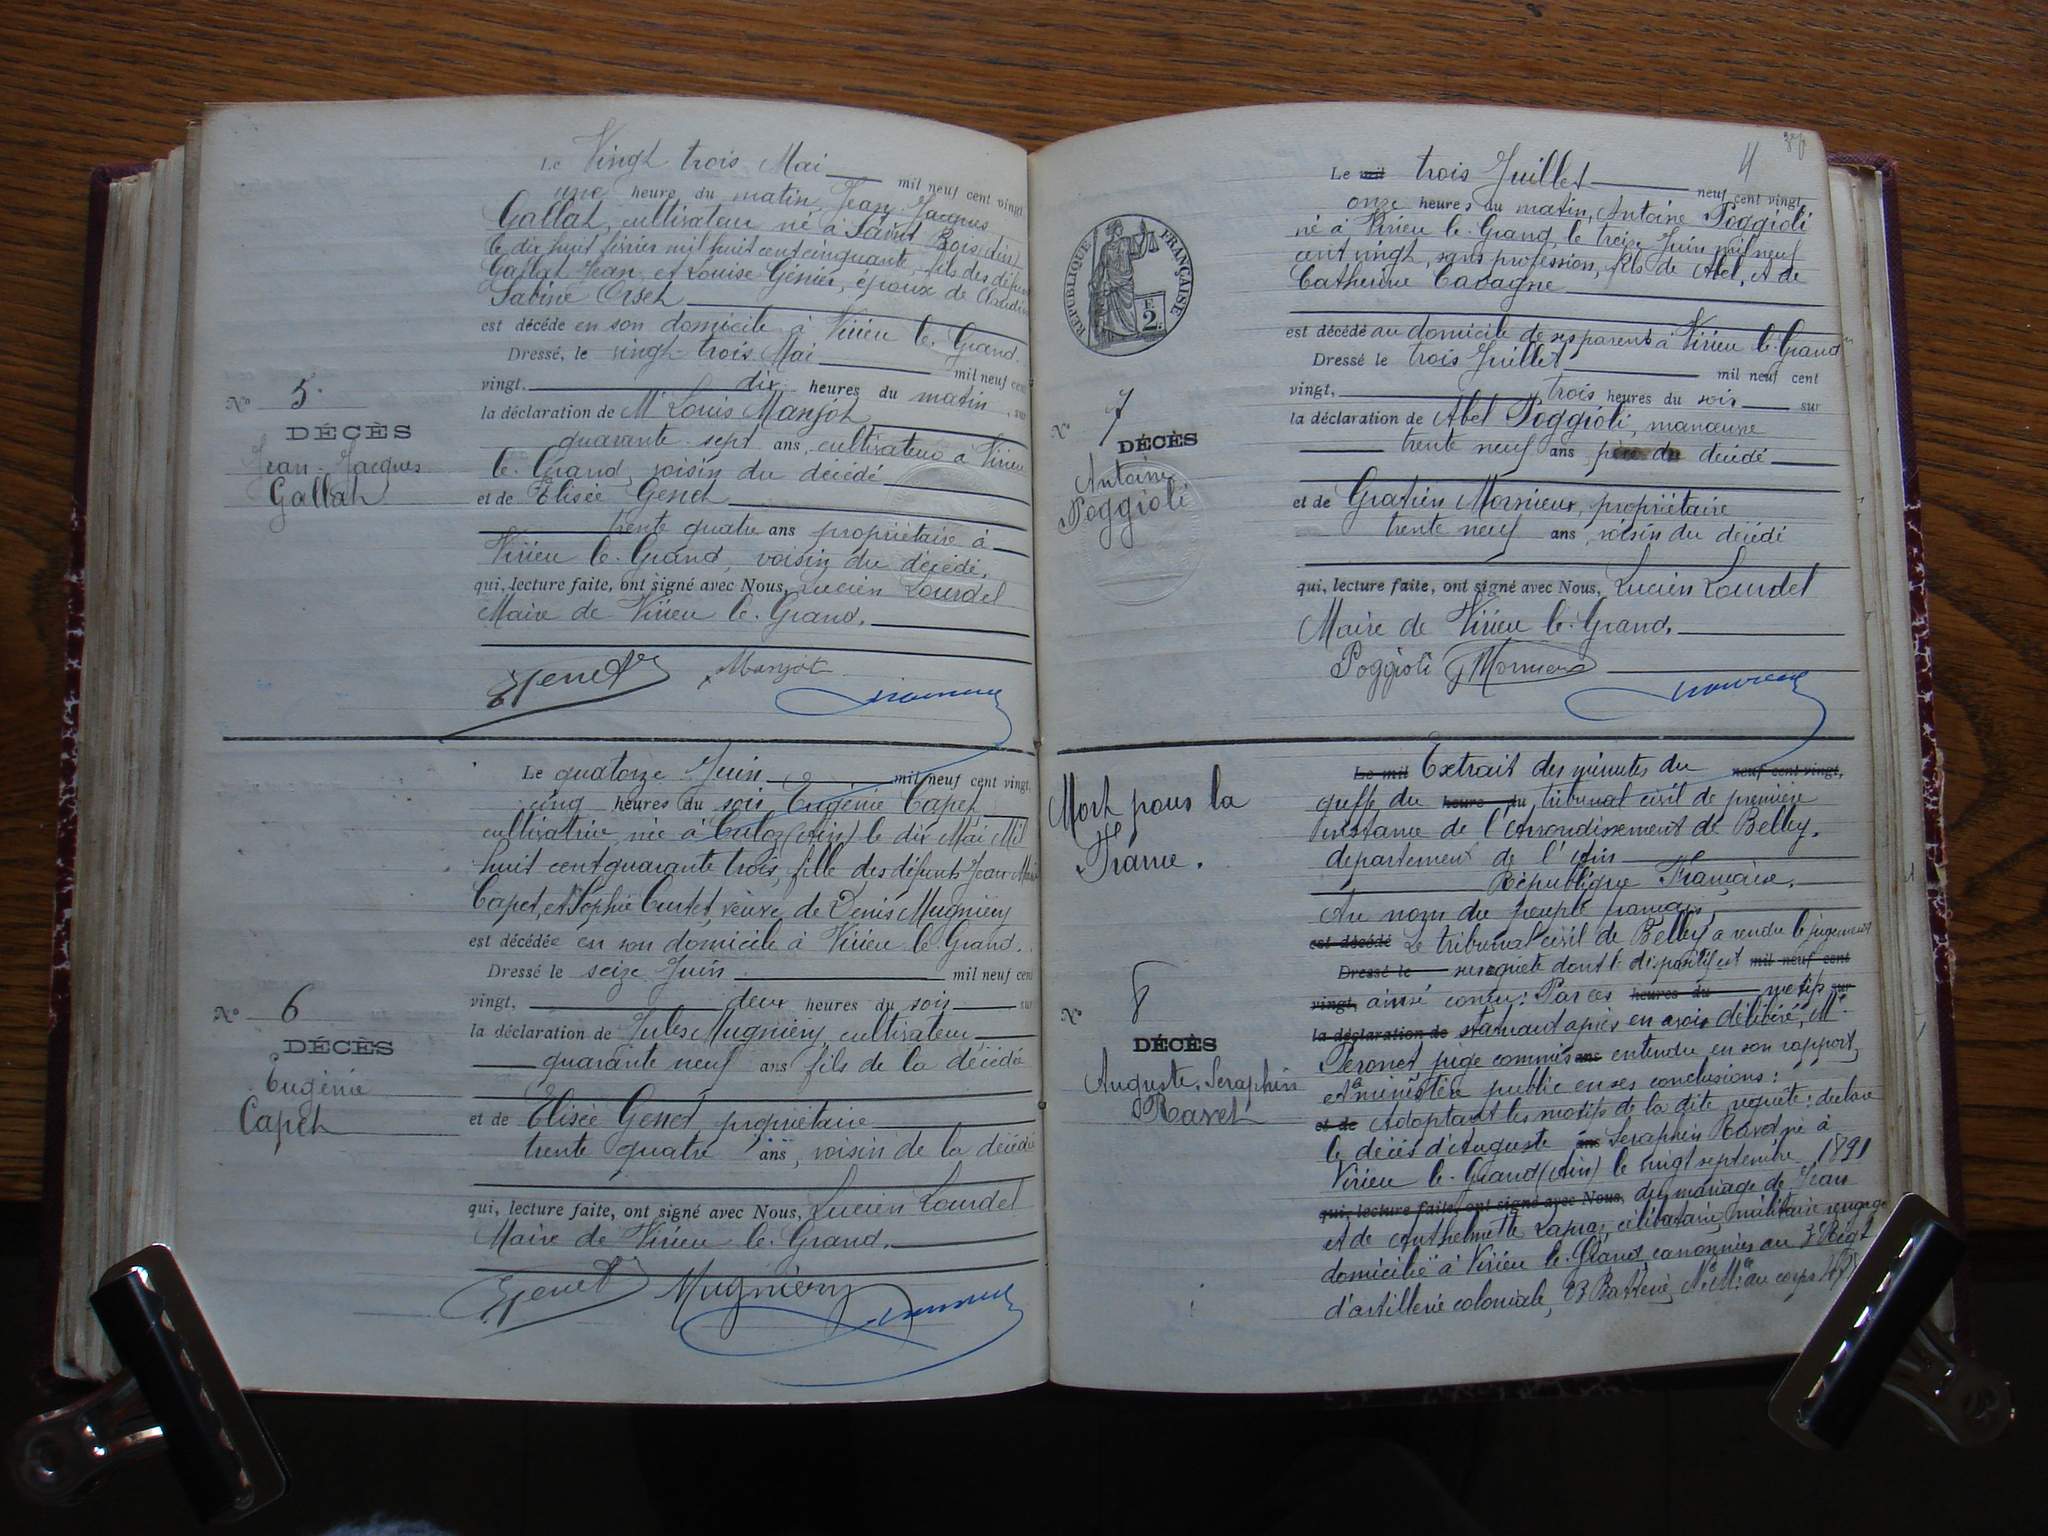 Le Vingt trois Mai mil neuf cent vingt,
une heure du matin, Jean Jacques
Gallat, cultivateur né à Saint Bois (Ain)
le dix huit février mil huit cent cinquante, fils des défunts
Gallat Jean et Louise Génier, époux de Claudine
Sabine Orset
est décédé en son domicile à Virieu le Grand.
Dressé, le vingt trois Mai mil neuf cent
vingt, dix heures du matin, sur
la déclaration de Mr Louis Manjot
quarante sept ans, cultivateur à Virieu
le Grand, voisin du décédé
et de Elisée Genet
trente quatre ans propriétaire à
Virieu le Grand, voisin du décédé,
qui, lecture faite, ont signé avec Nous, Lucien Lourdel
Maire de Virieu le Grand.
EGenet Manjot
No 5.
DÉCÈS
Jean Jacques
Gallat
Le quatorze Juin mil neuf cent vingt,
cinq heures du soir, Eugénie Capet
cultivatrice, née à Culoz (Ain) le dix Mai Mil
huit cent quarante trois, fille des défunts Jean Marie
Capet, et Sophie Curtet, veuve de Denis Mugniery
est décédée en son domicile à Virieu le Grand.
Dressé le seize Juin mil neuf cent
vingt, deux heures du soir sur
la déclaration de Jules Mugniery, cultivateur
quarante neuf ans fils de la décédée
et de Elisée Genet, propriétaire
trente quatre ans, voisin de la décédée
qui, lecture faite, ont signé avec Nous, Lucien Lourdel
Maire de Virieu le Grand.
EGenet Mugniery
No 6
DÉCÈS
Eugénie
Capet
4
Le mil trois Juillet neuf cent vingt,
onze heures du matin, Antoine Poggioli
né à Virieu le Grand, le treize Juin mil neuf
cent vingt, sans profession, fils de Abel, et de
Catherine Cavagne
est décédé au domicile de ses parents à Virieu le Grand
Dressé le trois Juillet mil neuf cent
vingt, trois heures du soir sur
la déclaration de Abel Poggioli, manœuvre
trente neuf ans père du décédé
et de Gratien Monnieur, propriétaire
trente neuf ans, voisin du décédé
qui, lecture faite, ont signé avec Nous, Lucien Lourdel
Maire de Virieu le Grand.
Poggioli GMonnieur
RÉPUBLIQUE FRANÇAISE
2F
No 7
DÉCÈS
Antoine
Poggioli
Mort pour la
France.
Le mil Extrait des minutes du neuf cent vingt,
greffe du heure du tribunal civil de première
instance de l'Arrondissement de Belley,
département de l'Ain
République Française.
Au nom du peuple français,
est décédé Le tribunal civil de Belley a rendu le jugement
Dressé le sur requête dont le dispositif est mil neuf cent
vingt, ainsi conçu: Par ces heures du motifs sur
la déclaration de statuant après en avoir délibéré, Mr
Peronet, juge commis ans entendu en son rapport,
et le ministère public en ses conclusions:
et de Adoptant les motifs de la dite requête: declare
le décès d'Auguste ans Seraphin Ravet né à
Virieu le Grand (Ain) le vingt septembre 1891
qui, lecture faite, ont signé avec Nous, du mariage de Jean
et de Anthelmette Lapraz, célibataire, militaire rengagé
domicilié à Virieu le Grand, canonnier au 3e Régt
d'artillerie coloniale, 23 Batterie, No Mle au corps
No 8
DÉCÈS
Auguste, Seraphin
Ravet